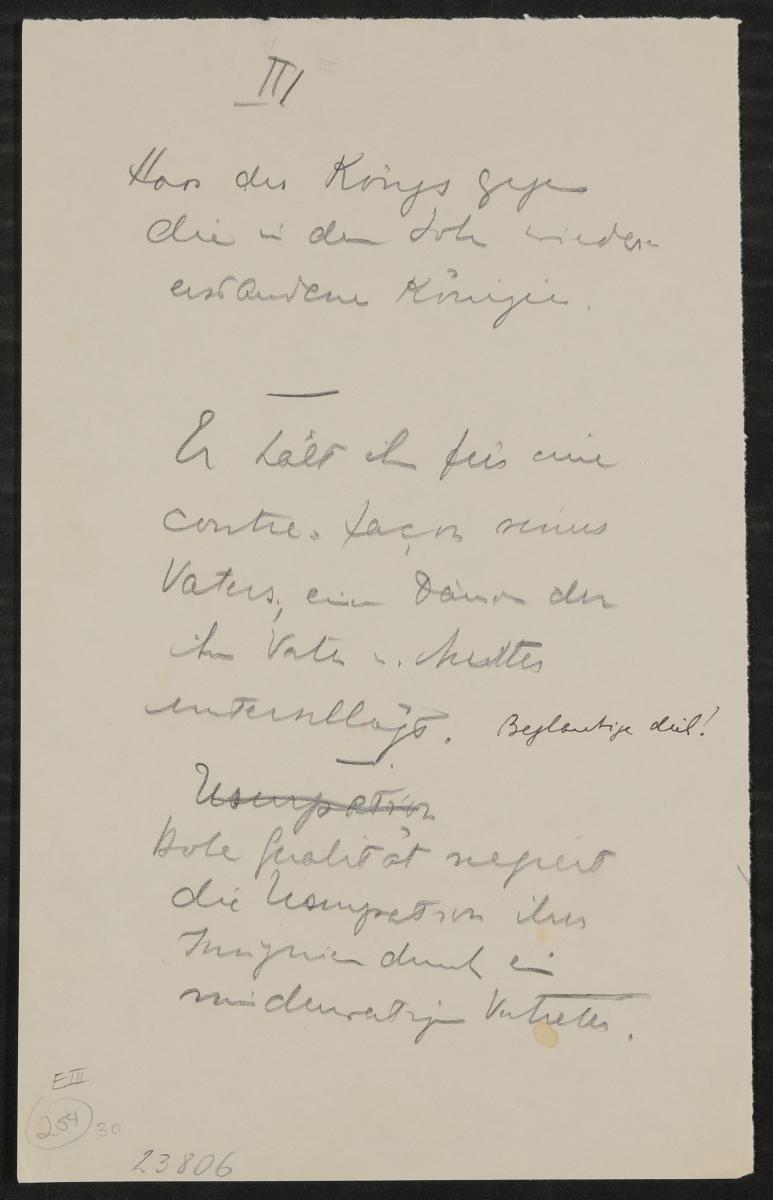 III
Hass des Königs gegen
die in dem Sohn wieder
erstandene Königin.
Er hält ihn für eine
contre-façon seines
Vaters, einen Dämon der
ihm Vater u.
unterschlägt. Beglaubige dich!
Usurpation
Hohe Qualität negiert
die Usurpation ihrer
Insignien durch ein
minderwertigen Vertreter.
E III
254 30
23806